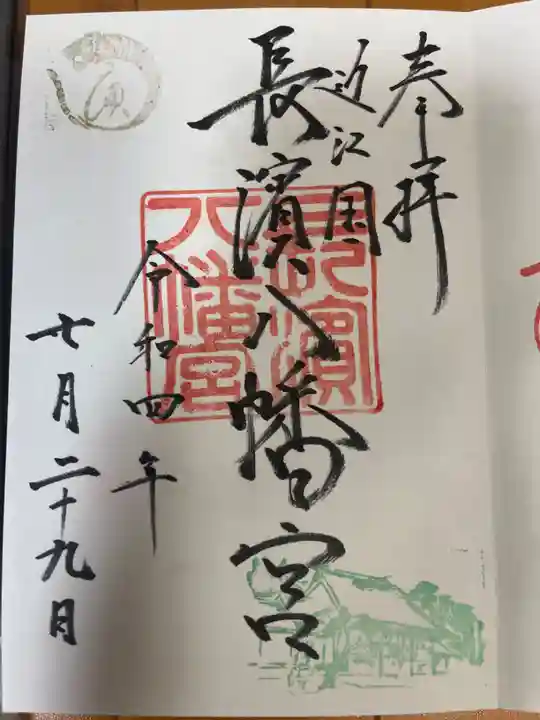 奉拝
近江国
長濱八幡宮
長濱
八幡宮
令和四年
七月二十九日
寅